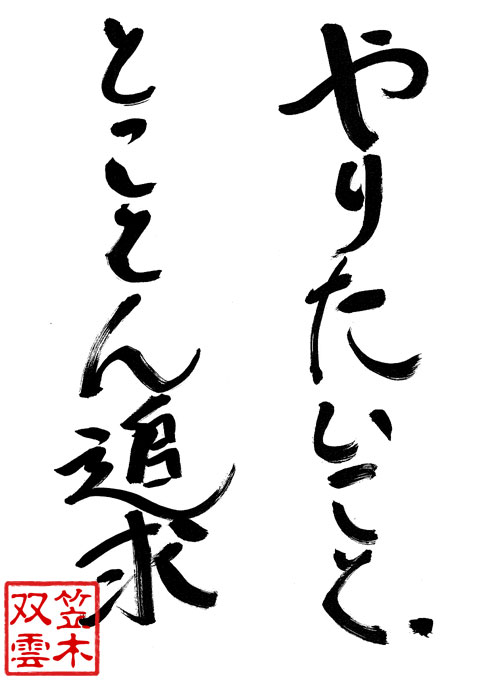 やりたいこと。
とことん追求
笠木
双雲